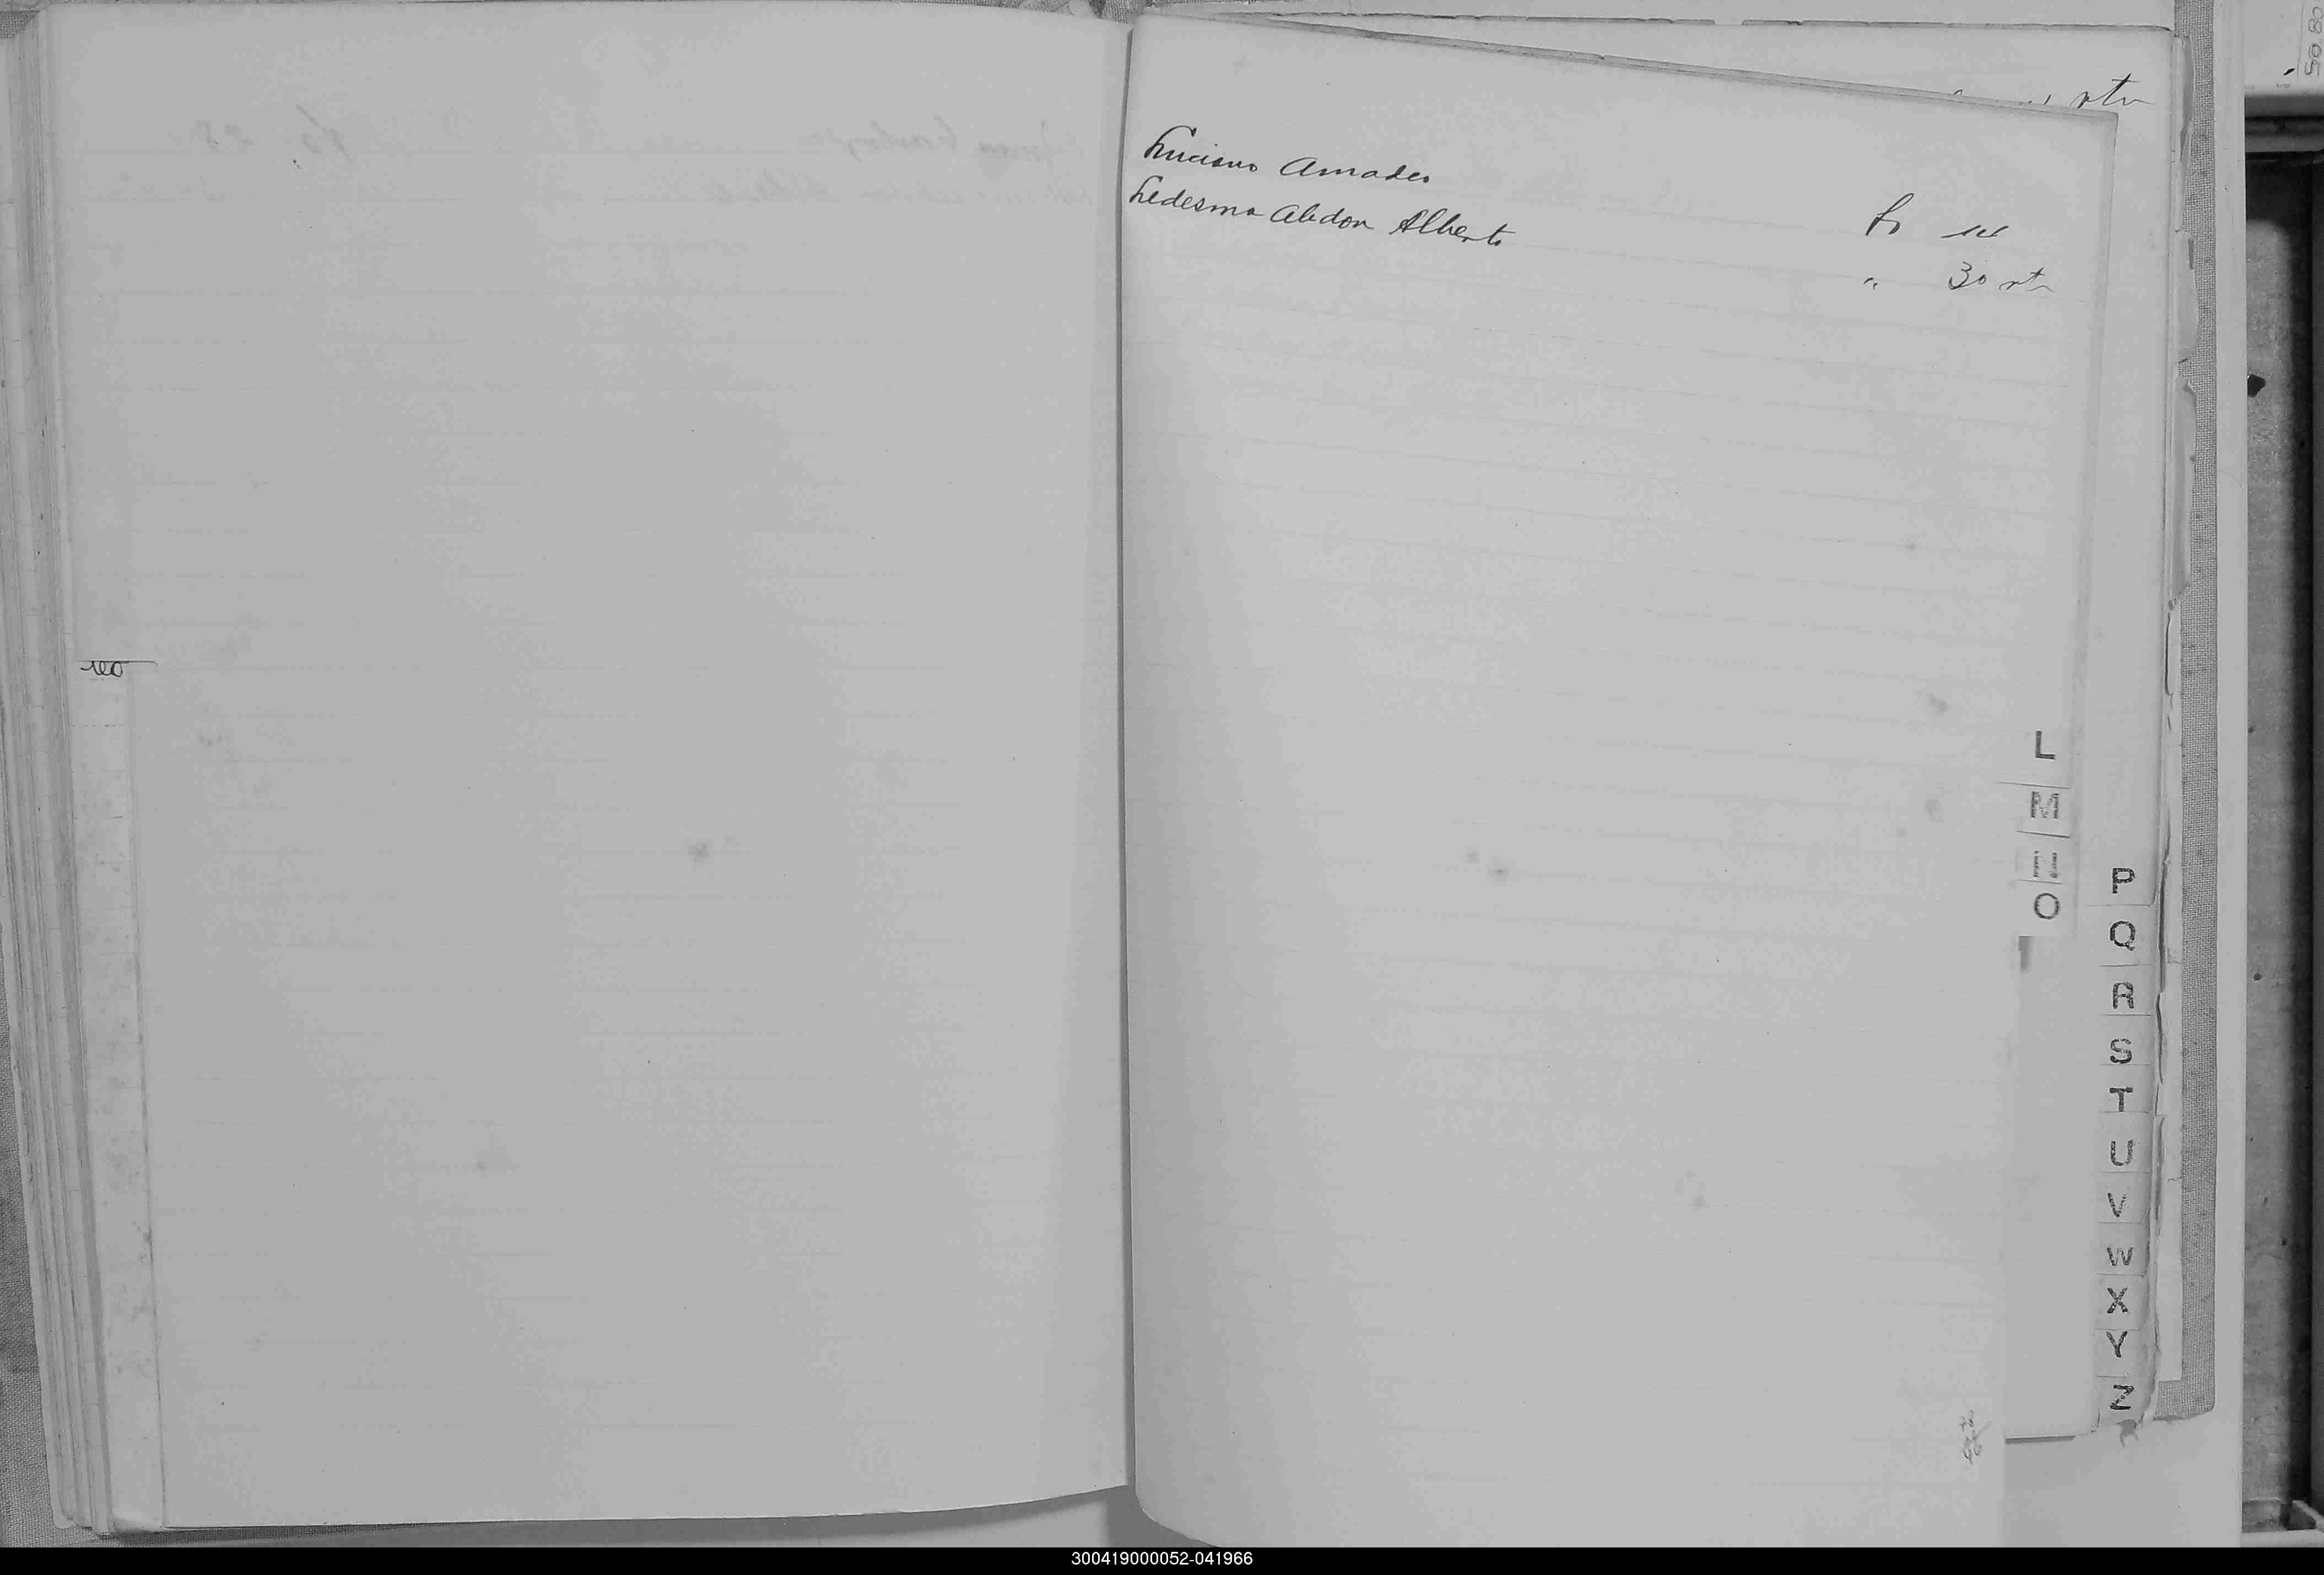 vta
Luciano Amadeo
Ledesma Abdon Alberto
Fo
" 30 vta
L
M
N
O
P
Q
R
S
T
U
V
W
X
Y
Z
300419000052-041966